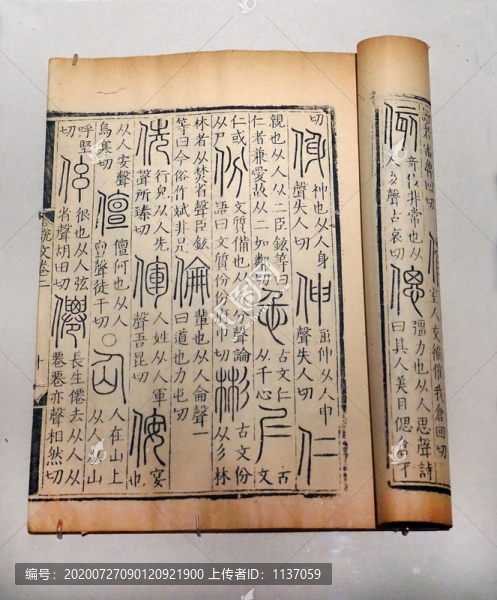 回切
侅
奇侅非常也从
人亥聲古哀切
偲
彊力也从人思聲詩
曰其人美且偲倉才
切
㑗
神也从人身
聲失人切
伸
屈伸从人申
聲失人切
仁
親也从人从二臣鉉等曰
仁者兼愛故从二如鄰切
忎
古文仁
从千心
𡰥
古文
仁或
从尸
份
文質備也从人分聲論
語曰文質份份府巾切
彬
古文份
从彡林
林者从焚省聲臣鉉
等曰今俗作斌非是
倫
輩也从人侖聲一
曰道也力屯切
侁
行皃从人先
聲所臻切
㑮
姓从人軍
聲吾昆切
侒
宴也
从人安聲
烏寒切
儃
儃何也从人
亶聲徒干切
仚
人在山上
从人从山
呼堅
切
伭
很也从人弦
省聲胡田切
僊
長生僊去从人从
䙴䙴亦聲相然切
說文卷二
十
编号:20200727090120921900 上传者ID:1137059